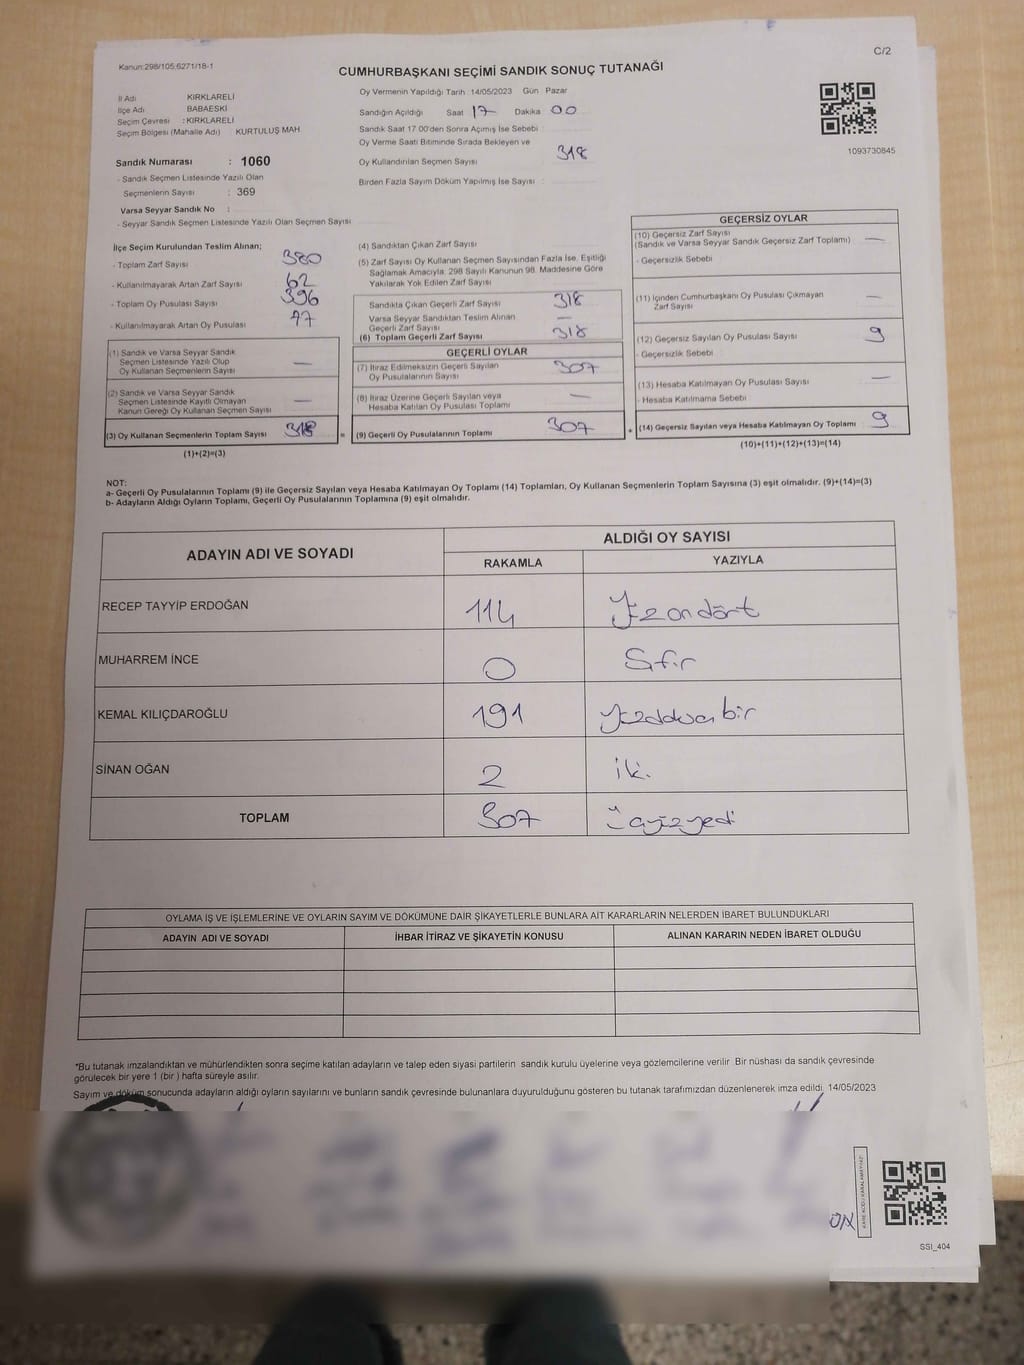 C/2
Kanun:298/105,6271/18-1
CUMHURBAŞKANI SEÇİMİ SANDIK SONUÇ TUTANAĞI
İl Adı KIRKLARELİ
İlçe Adı BABAESKİ
Seçim Çevresi : KIRKLARELİ
Seçim Bölgesi (Mahalle Adı) KURTULUŞ MAH.
Sandık Numarası : 1060
- Sandık Seçmen Listesinde Yazılı Olan
Seçmenlerin Sayısı : 369
Varsa Seyyar Sandık No :
- Seyyar Sandık Seçmen Listesinde Yazılı Olan Seçmen Sayısı
Oy Vermenin Yapıldığı Tarih :14/05/2023 Gün Pazar
Sandığın Açıldığı Saat 17 Dakika 00
Sandık Saat 17.00'den Sonra Açımış İse Sebebi :
Oy Verme Saati Bitiminde Sırada Bekleyen ve
Oy Kullandırılan Seçmen Sayısı 318
Birden Fazla Sayım Döküm Yapılmış İse Sayısı :
1093730845
İlçe Seçim Kurulundan Teslim Alınan;
- Toplam Zarf Sayısı 380
- Kullanılmayarak Artan Zarf Sayısı 62
- Toplam Oy Pusulası Sayısı 396
- Kullanılmayarak Artan Oy Pusulası 77
(1) Sandık ve Varsa Seyyar Sandık
Seçmen Listesinde Yazılı Olup
Oy Kullanan Seçmenlerin Sayısı —
(2) Sandık ve Varsa Seyyar Sandık
Seçmen Listesinde Kayıtlı Olmayan
Kanun Gereği Oy Kullanan Seçmen Sayısı —
(3) Oy Kullanan Seçmenlerin Toplam Sayısı 318 =
(1)+(2)=(3)
(4) Sandıktan Çıkan Zarf Sayısı
(5) Zarf Sayısı Oy Kullanan Seçmen Sayısından Fazla İse, Eşitliği
Sağlamak Amacıyla, 298 Sayılı Kanunun 98. Maddesine Göre
Yakılarak Yok Edilen Zarf Sayısı
Sandıkta Çıkan Geçerli Zarf Sayısı 318
Varsa Seyyar Sandıktan Teslim Alınan
Geçerli Zarf Sayısı —
(6) Toplam Geçerli Zarf Sayısı 318
GEÇERLİ OYLAR
(7) İtiraz Edilmeksizin Geçerli Sayılan
Oy Pusulalarının Sayısı 307
(8) İtiraz Üzerine Geçerli Sayılan veya
Hesaba Katılan Oy Pusulası Toplamı —
(9) Geçerli Oy Pusulalarının Toplamı 307 +
GEÇERSİZ OYLAR
(10) Geçersiz Zarf Sayısı
(Sandık ve Varsa Seyyar Sandık Geçersiz Zarf Toplamı) —
- Geçersizlik Sebebi
(11) İçinden Cumhurbaşkanı Oy Pusulası Çıkmayan
Zarf Sayısı —
(12) Geçersiz Sayılan Oy Pusulası Sayısı 9
- Geçersizlik Sebebi
(13) Hesaba Katılmayan Oy Pusulası Sayısı —
- Hesaba Katılmama Sebebi
(14) Geçersiz Sayılan veya Hesaba Katılmayan Oy Toplamı 9
(10)+(11)+(12)+(13)=(14)
NOT:
a- Geçerli Oy Pusulalarının Toplamı (9) ile Geçersiz Sayılan veya Hesaba Katılmayan Oy Toplamı (14) Toplamları, Oy Kullanan Seçmenlerin Toplam Sayısına (3) eşit olmalıdır. (9)+(14)=(3)
b- Adayların Aldığı Oyların Toplamı, Geçerli Oy Pusulalarının Toplamına (9) eşit olmalıdır.
ADAYIN ADI VE SOYADI ALDIĞI OY SAYISI
RAKAMLA YAZIYLA
RECEP TAYYİP ERDOĞAN 114 Yüzondört
MUHARREM İNCE 0 Sıfır
KEMAL KILIÇDAROĞLU 191 yüzdoksanbir
SİNAN OĞAN 2 iki
TOPLAM 307 üçyüzyedi
OYLAMA İŞ VE İŞLEMLERİNE VE OYLARIN SAYIM VE DÖKÜMÜNE DAİR ŞİKAYETLERLE BUNLARA AİT KARARLARIN NELERDEN İBARET BULUNDUKLARI
ADAYIN ADI VE SOYADI İHBAR İTİRAZ VE ŞİKAYETİN KONUSU ALINAN KARARIN NEDEN İBARET OLDUĞU
*Bu tutanak imzalandıktan ve mühürlendikten sonra seçime katılan adayların ve talep eden siyasi partilerin sandık kurulu üyelerine veya gözlemcilerine verilir Bir nüshası da sandık çevresinde
görülecek bir yere 1 (bir ) hafta süreyle asılır.
Sayım ve döküm sonucunda adayların aldığı oyların sayılarını ve bunların sandık çevresinde bulunanlara duyurulduğunu gösteren bu tutanak tarafımızdan düzenlenerek imza edildi. 14/05/2023
KARE KODU KARALAMAYINIZ!
SSI_404